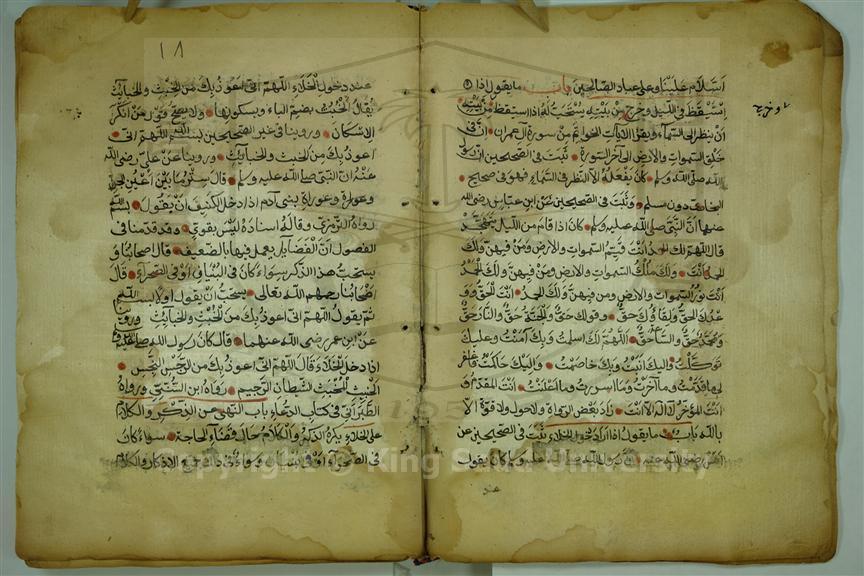 السلام علينا وعلى عباد الصالحين باب ما يقول اذا
استيقظ في الليل وخرج من بيته يستحب له اذا استيقظ من الليل
ان ينظر الى السماء ويقرا الايات الخواتم من سورة ال عمران ان في
خلق السموات والارض الى آخر السورة ثبت في الصحيحين ان رسول
الله صلى الله عليه وسلم كان يفعله الا النظر في السماء فهو في صحيح
البخاري دون مسلم وثبت في الصحيحين عن ابن عباس رضي الله
عنهما ان النبي صلى الله عليه وسلم كان اذا قام من الليل يتهجد
قال اللهم لك الحمد انت قيم السموات والارض ومن فيهن ولك
الحمد انت ولك ملك السموات والارض ومن فيهن ولك الحمد
انت نور السموات والارض ومن فيهن ولك الحمد انت الحق و
عدك الحق ولقاؤك حق وقولك حق والجنة حق والنار حق
ومحمد حق والساعة حق اللهم لك اسلمت وبك آمنت وعليك
توكلت واليك انبت وبك خاصمت واليك حاكمت فاغفر
لي ما قدمت وما اخرت وما اسررت وما اعلنت انت المقدم و
انت المؤخر لا اله الا انت زاد بعض الرواة ولا حول ولا قوة الا
بالله باب ما يقول اذا اراد دخول الخلاء ثبت في الصحيحين عن
انس رضي الله عنه ان رسول الله صلى الله عليه وسلم كان يقول
عند
وخرج
١٨
عند دخول الخلاء اللهم اني اعوذ بك من الخبث والخبائث
يقال الخبث بضم الباء وبسكونها ولا يصح قول من انكر
الاسكان وروينا في غير الصحيحين بسم الله اللهم اني
اعوذ بك من الخبث والخبائث وروينا عن علي رضي الله
عنه ان النبي صلى الله عليه وسلم قال ستر ما بين اعين الجن
وعورات بني آدم اذا دخل الكنيف ان يقول بسم الله
رواه الترمذي وقال اسناده ليس بقوي وقد قدمنا في
الفصول ان الفضايل يعمل فيها بالضعيف قال اصحابنا و
يستحب هذا الذكر سواء كان في البنيان او في الصحراء قال
اصحابنا رحمهم الله تعالى يستحب ان يقول اولا بسم الله
ثم يقول اللهم اني اعوذ بك من الخبث والخبائث وروينا
عن ابن عمر رضي الله عنهما قال كان رسول الله صلى الله عليه
اذا دخل الخلاء قال اللهم اني اعوذ بك من الرجس النجس
الخبيث المخبث الشيطان الرجيم رواه ابن السني ورواه
الطبراني في كتاب الدعاء باب النهي عن الذكر والكلام
على الخلاء يكره الذكر والكلام حال قضاء الحاجة سواء كان
في الصحراء او في البنيان وسواء في ذلك جميع الاذكار والكلام
Copyright © King Saud University